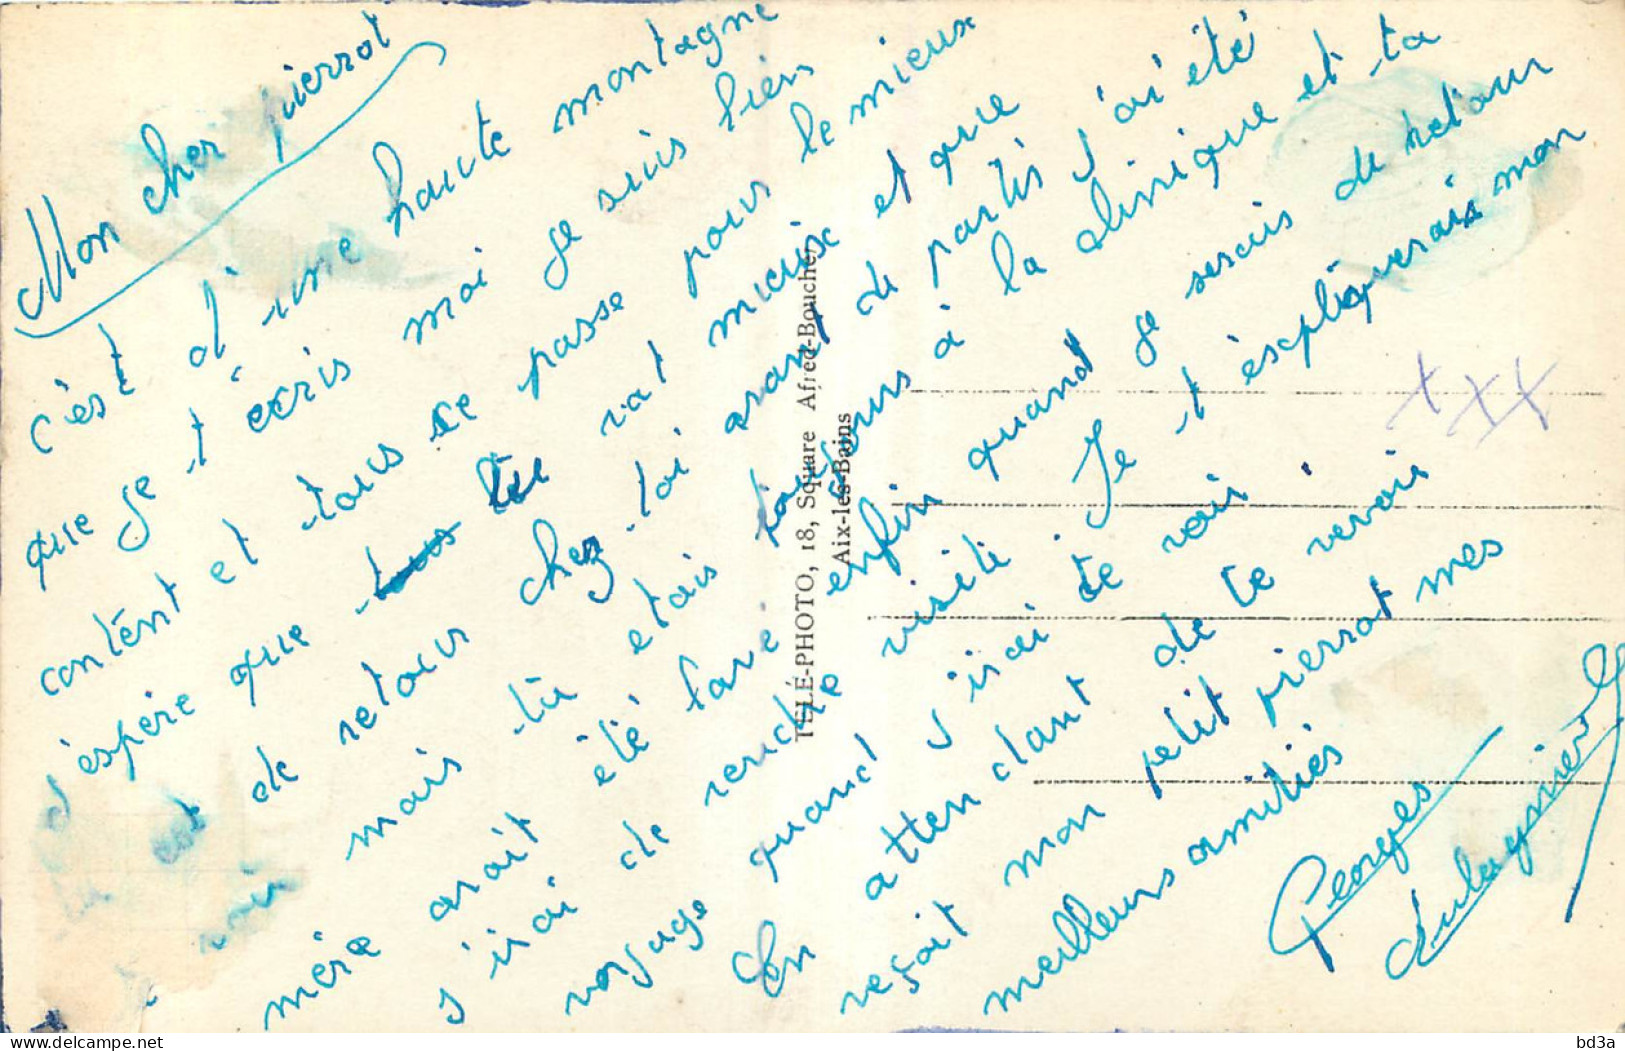 Mon cher pierrot
c'est d'une haute montagne
que je t'écris moi je suis bien
contént et tous ce passe pour le mieux
j'éspère que tu vat mieux et que
est de retour chez toi avant de partir j'ai été
mais tu etais toujours à la clinique et ta
mère avait été lave enfin quand je serais de retour
j'irai de rendre visite. Je t'ésspliquerais mon
voyage quand j'irai te voir.
En attendant de te revoir
reçoit mon petit pierrot mes
meilleurs amitiés
Georges
dulagnier
TELE-PHOTO, 18, Square Alfred-Boucher,
Aix-les-Bains
bd3a